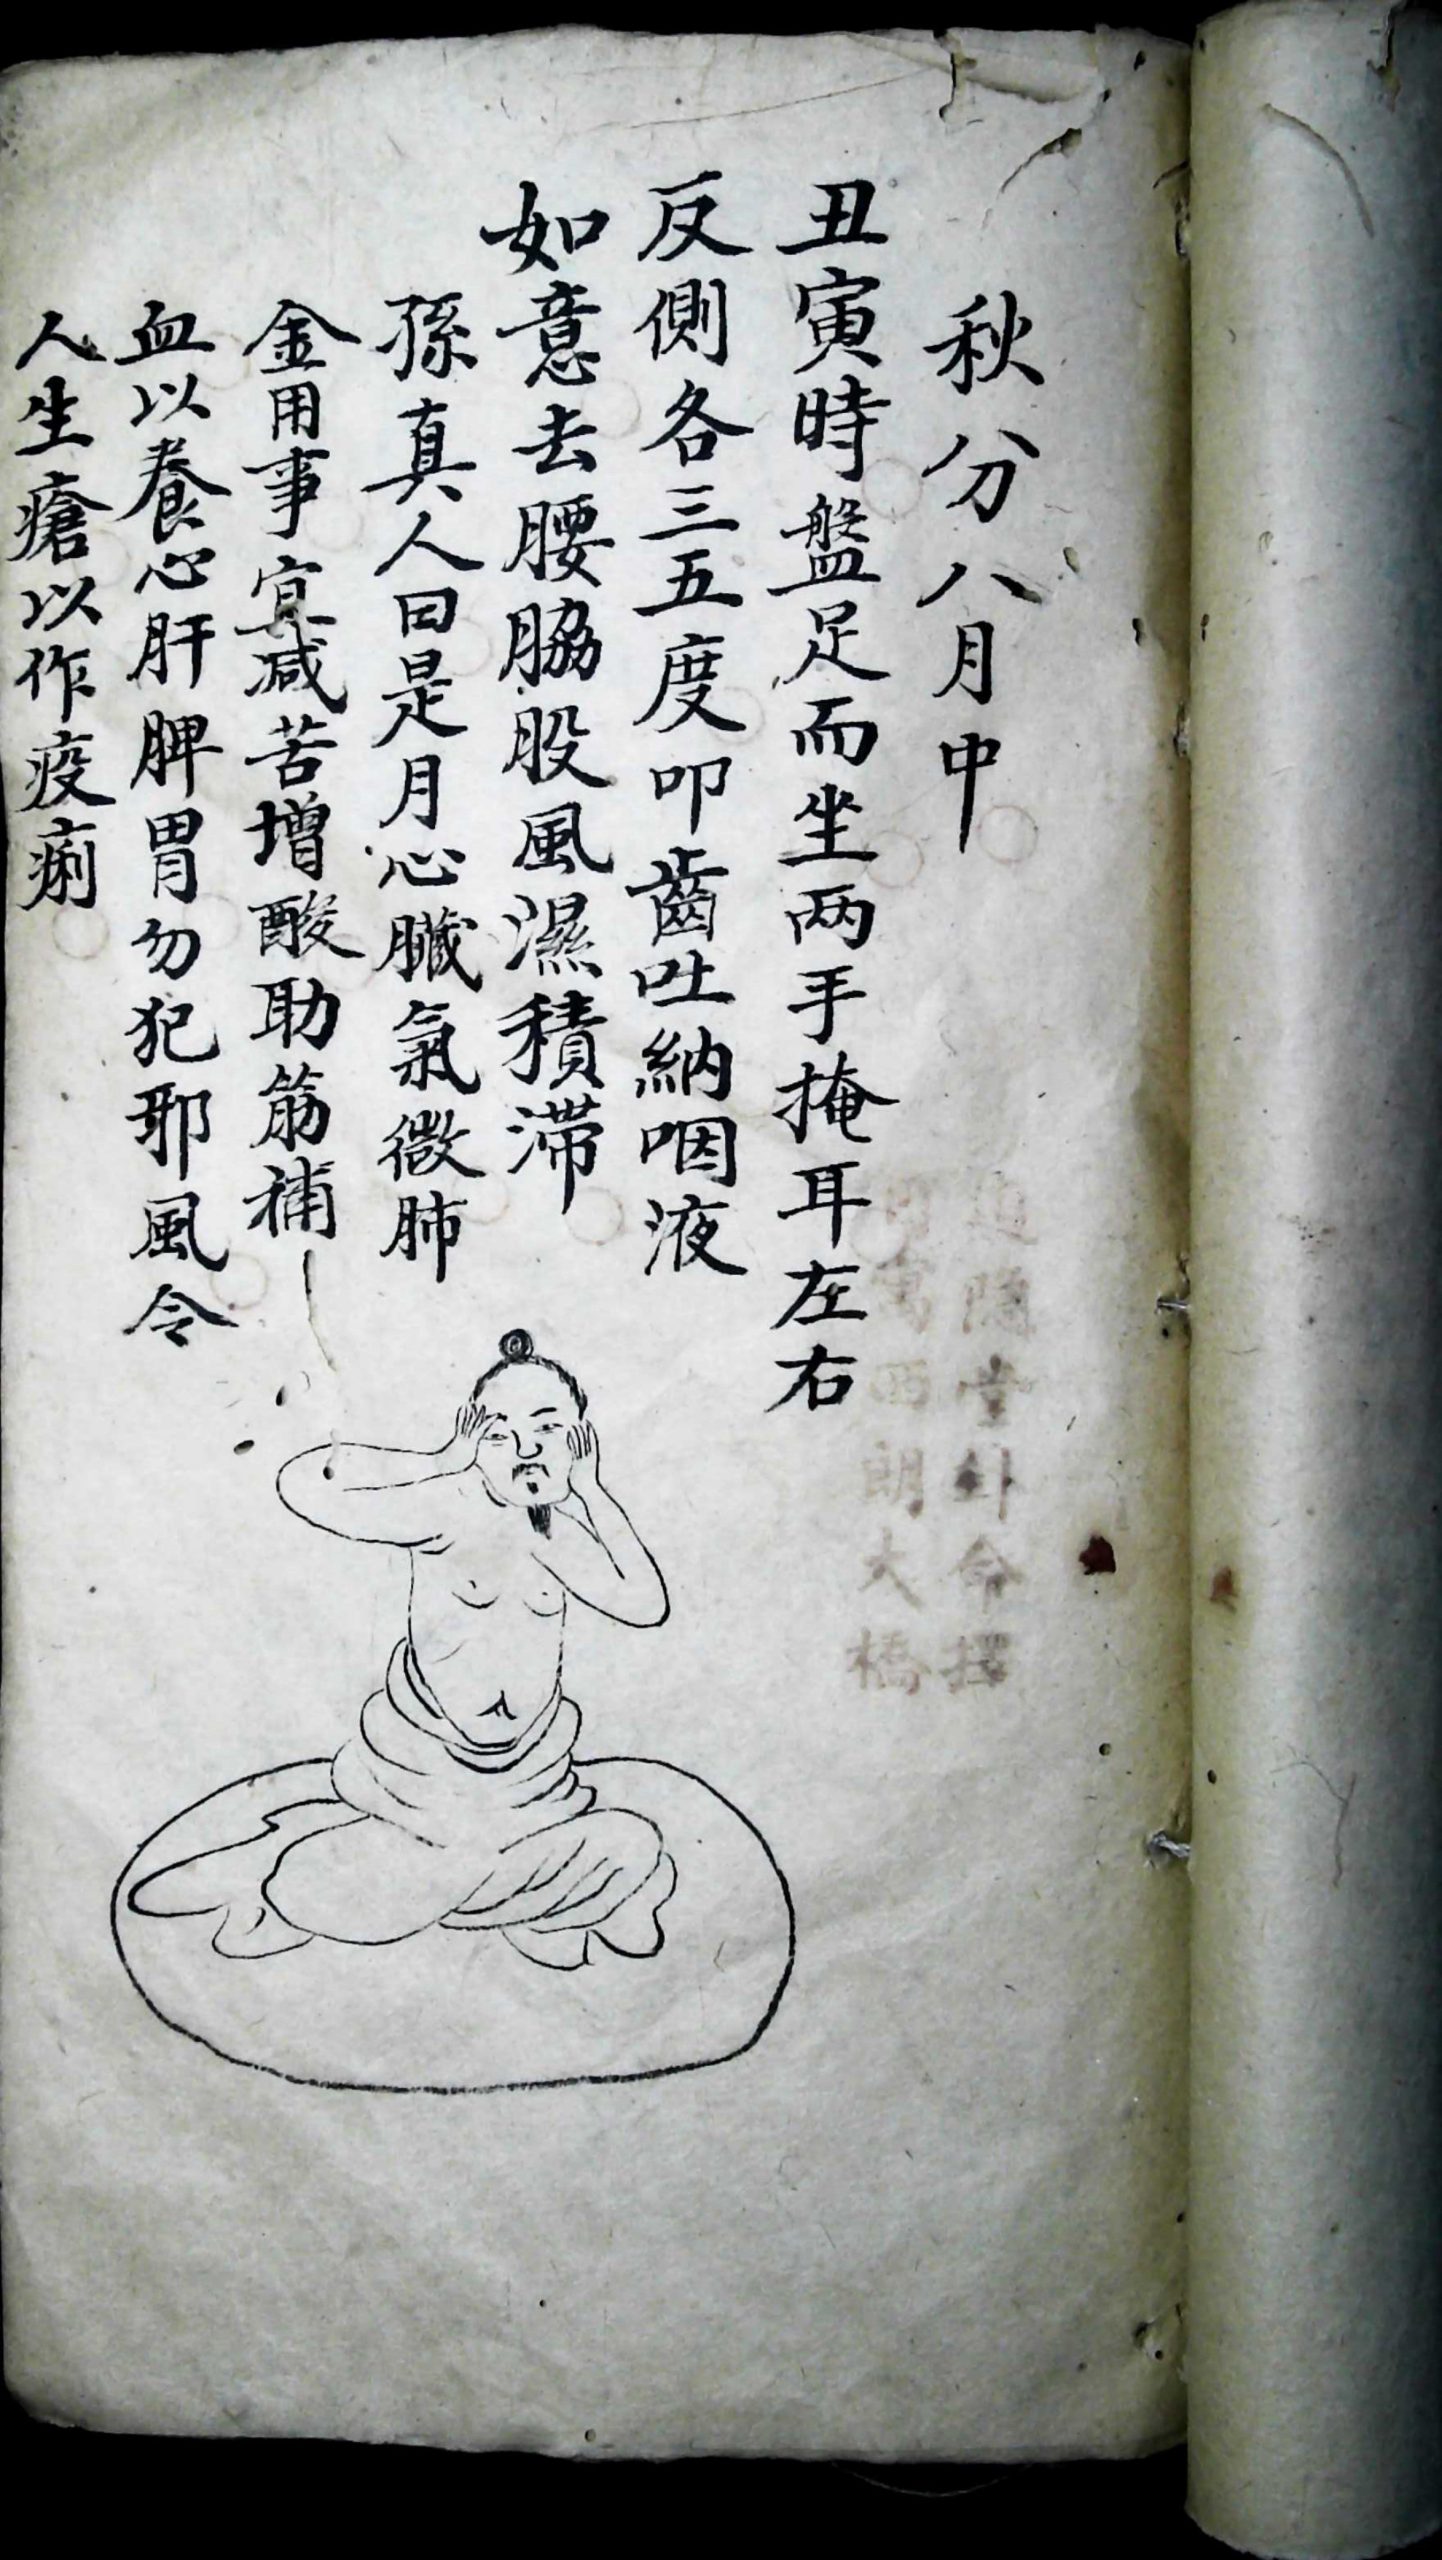 秋分八月中
丑寅時盤足而坐两手掩耳左右
反側各三五度叩齒吐納咽液
如意去腰脇股風濕積滞
孫真人曰是月心臟氣微肺
金用事宜减苦增酸助筋補
血以養心肝脾胃勿犯邪風令
人生瘡以作疫痢
命擇
朗大橋